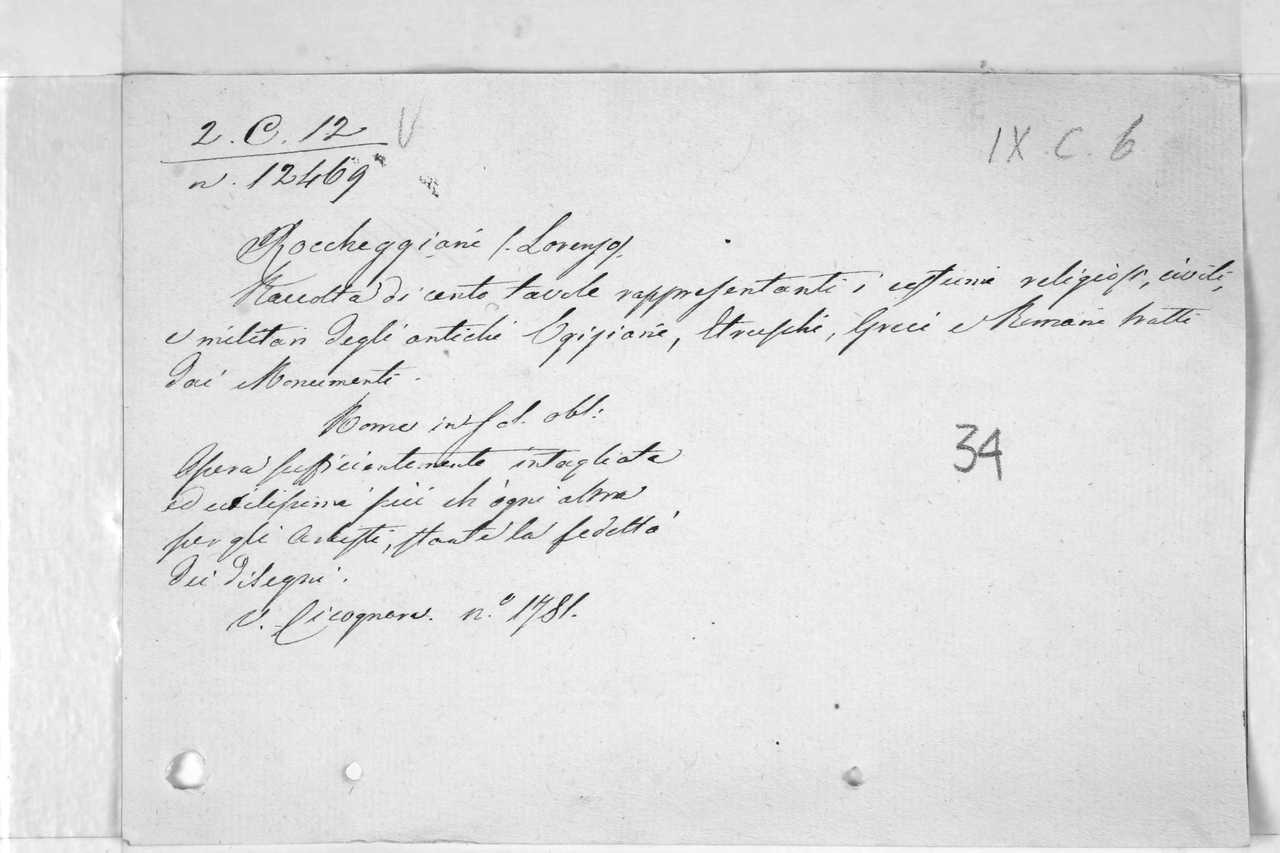 2. C. 12 V
IX. C. 6
n. 12469
Roccheggiani (Lorenzo).
Raccolta di cento tavole rappresentanti i costumi religiosi, civili,
e militari degli antichi Egiziani, Etruschi, Greci e Romani tratti
dai Monumenti.
Roma in fol. obl:
34
Opera sufficientemente intagliata
ed utilissima più ch'ogni altra
per gli Artisti, stante la fedeltà
dei disegni.
V. Cicognara. n.º 1781.